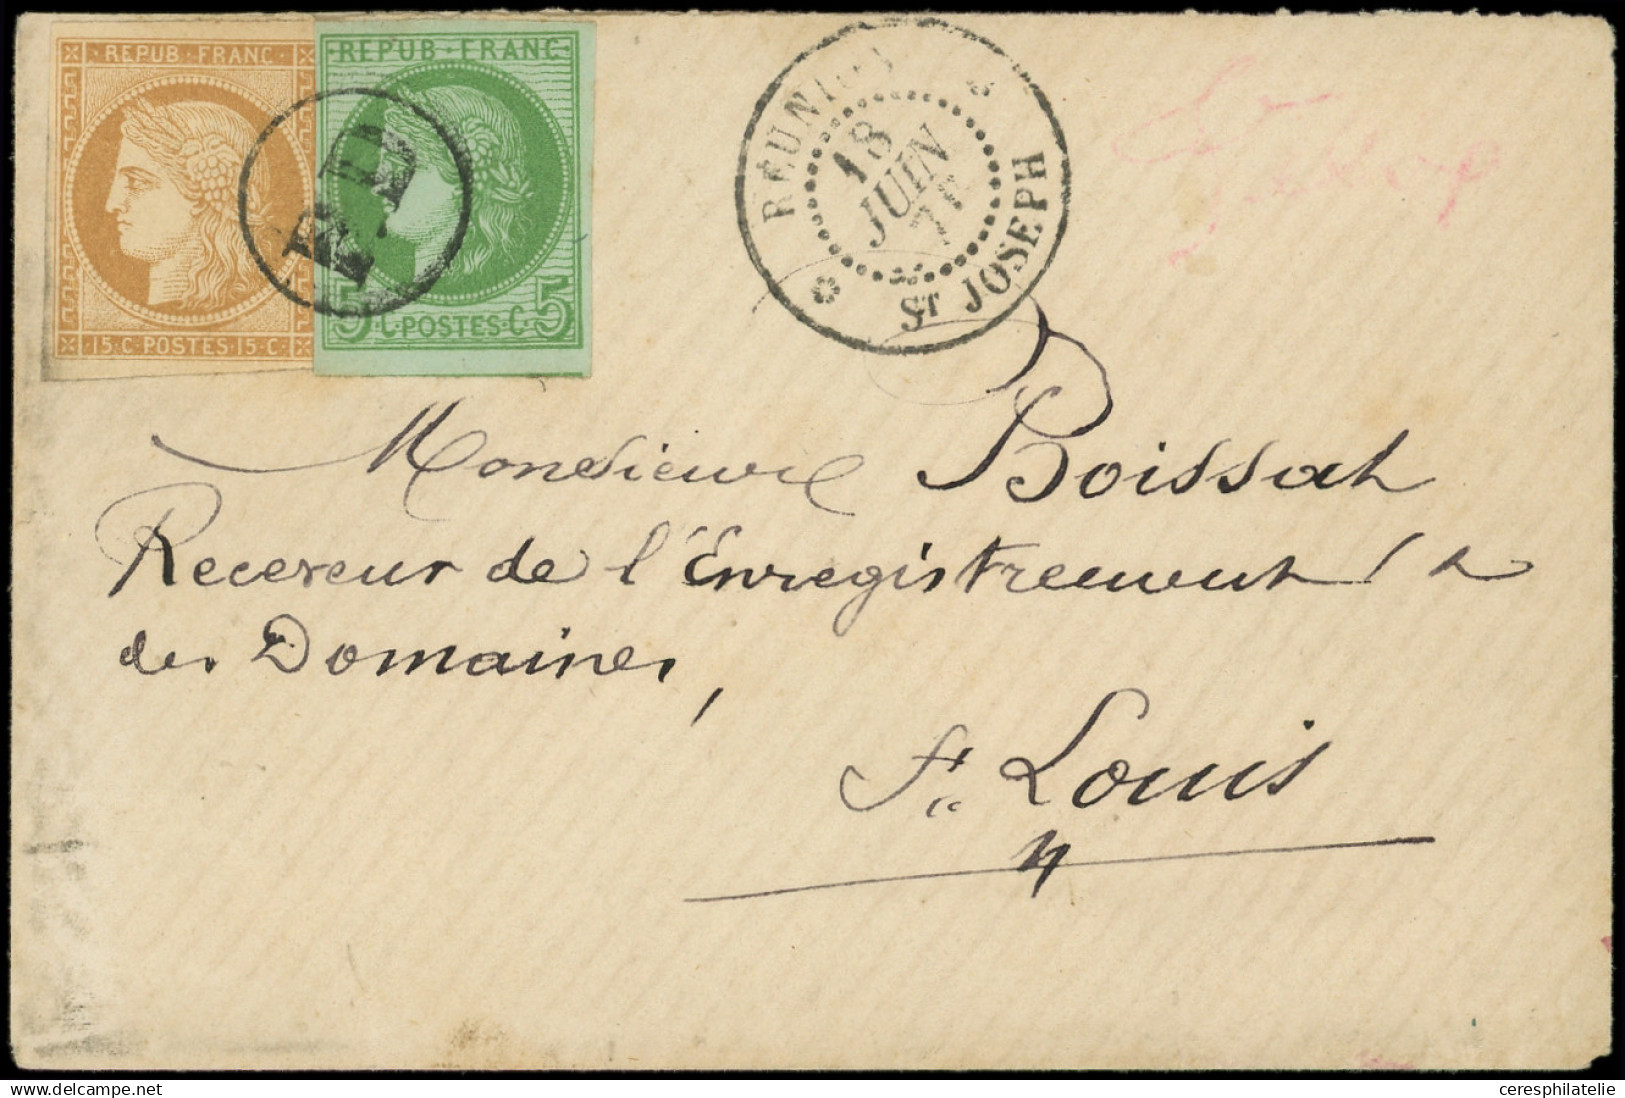 REPUB·FRANC
15·C·POSTES·15·C·
REPUB·FRANC
5·C·POSTES·C·5
RÉUNION
18
JUIN
77
ST JOSEPH
Monsieur Boissat
Receveur de l'Enregistrement &
des Domaines,
St. Louis
ceresphilatelie